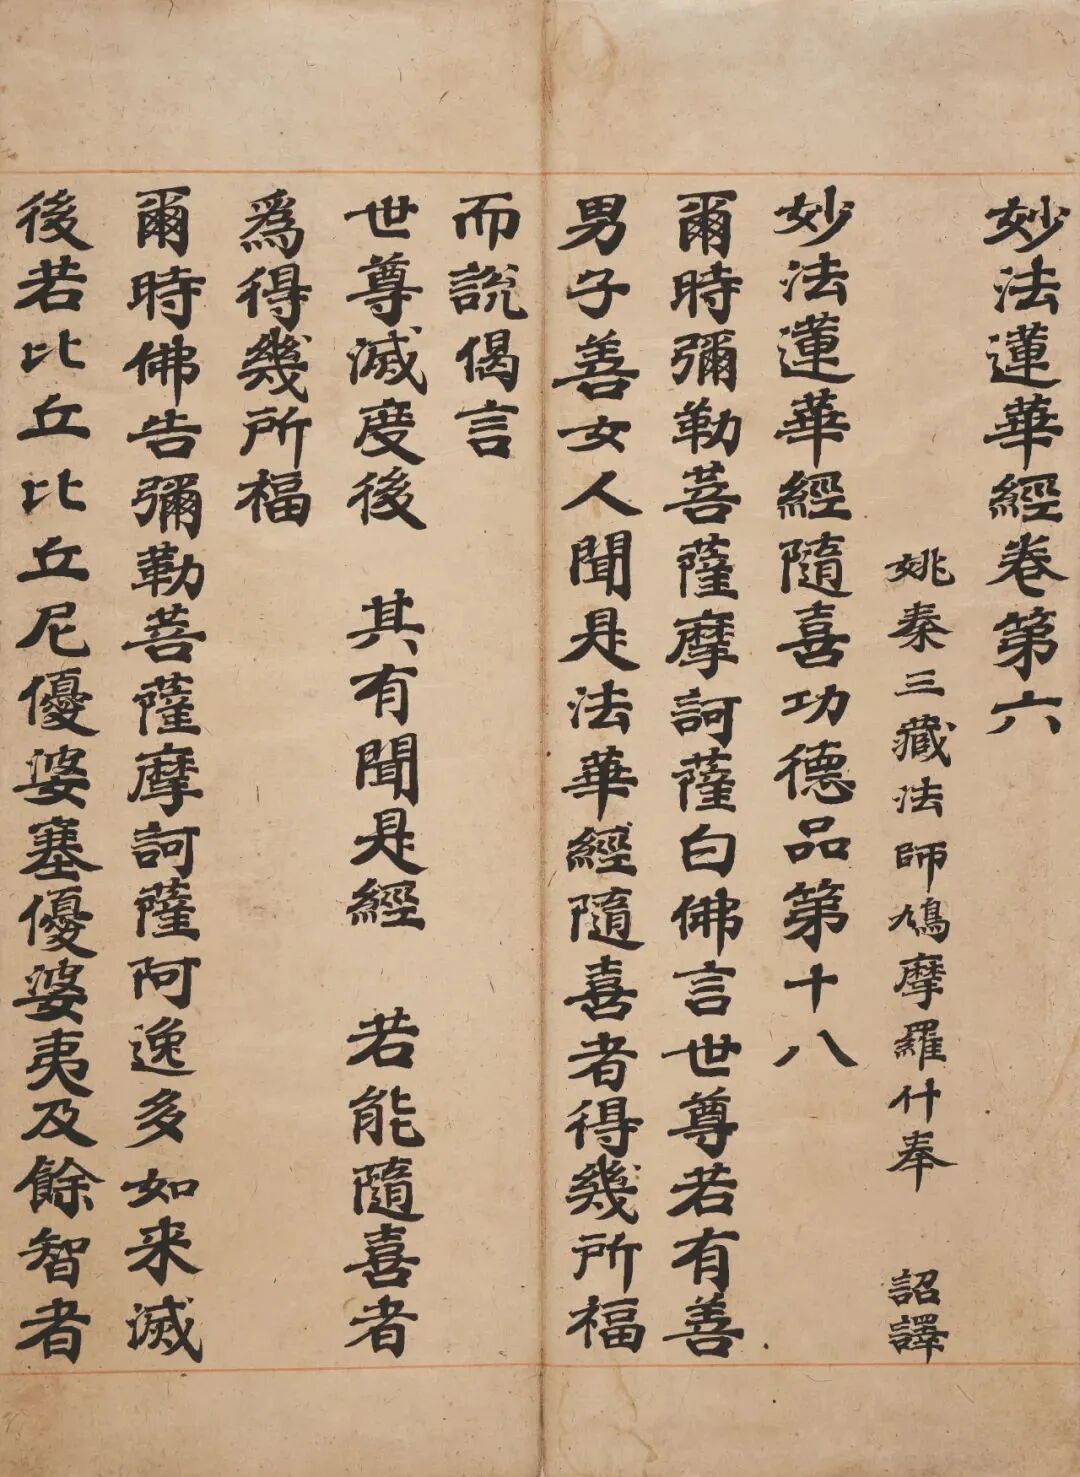 妙法蓮華經卷第六
姚秦三藏法師鳩摩羅什奉 詔譯
妙法蓮華經隨喜功德品第十八
爾時彌勒菩薩摩訶薩白佛言世尊若有善
男子善女人聞是法華經隨喜者得幾所福
而說偈言
世尊滅度後 其有聞是經 若能隨喜者
為得幾所福
爾時佛告彌勒菩薩摩訶薩阿逸多如来滅
後若比丘比丘尼優婆塞優婆夷及餘智者